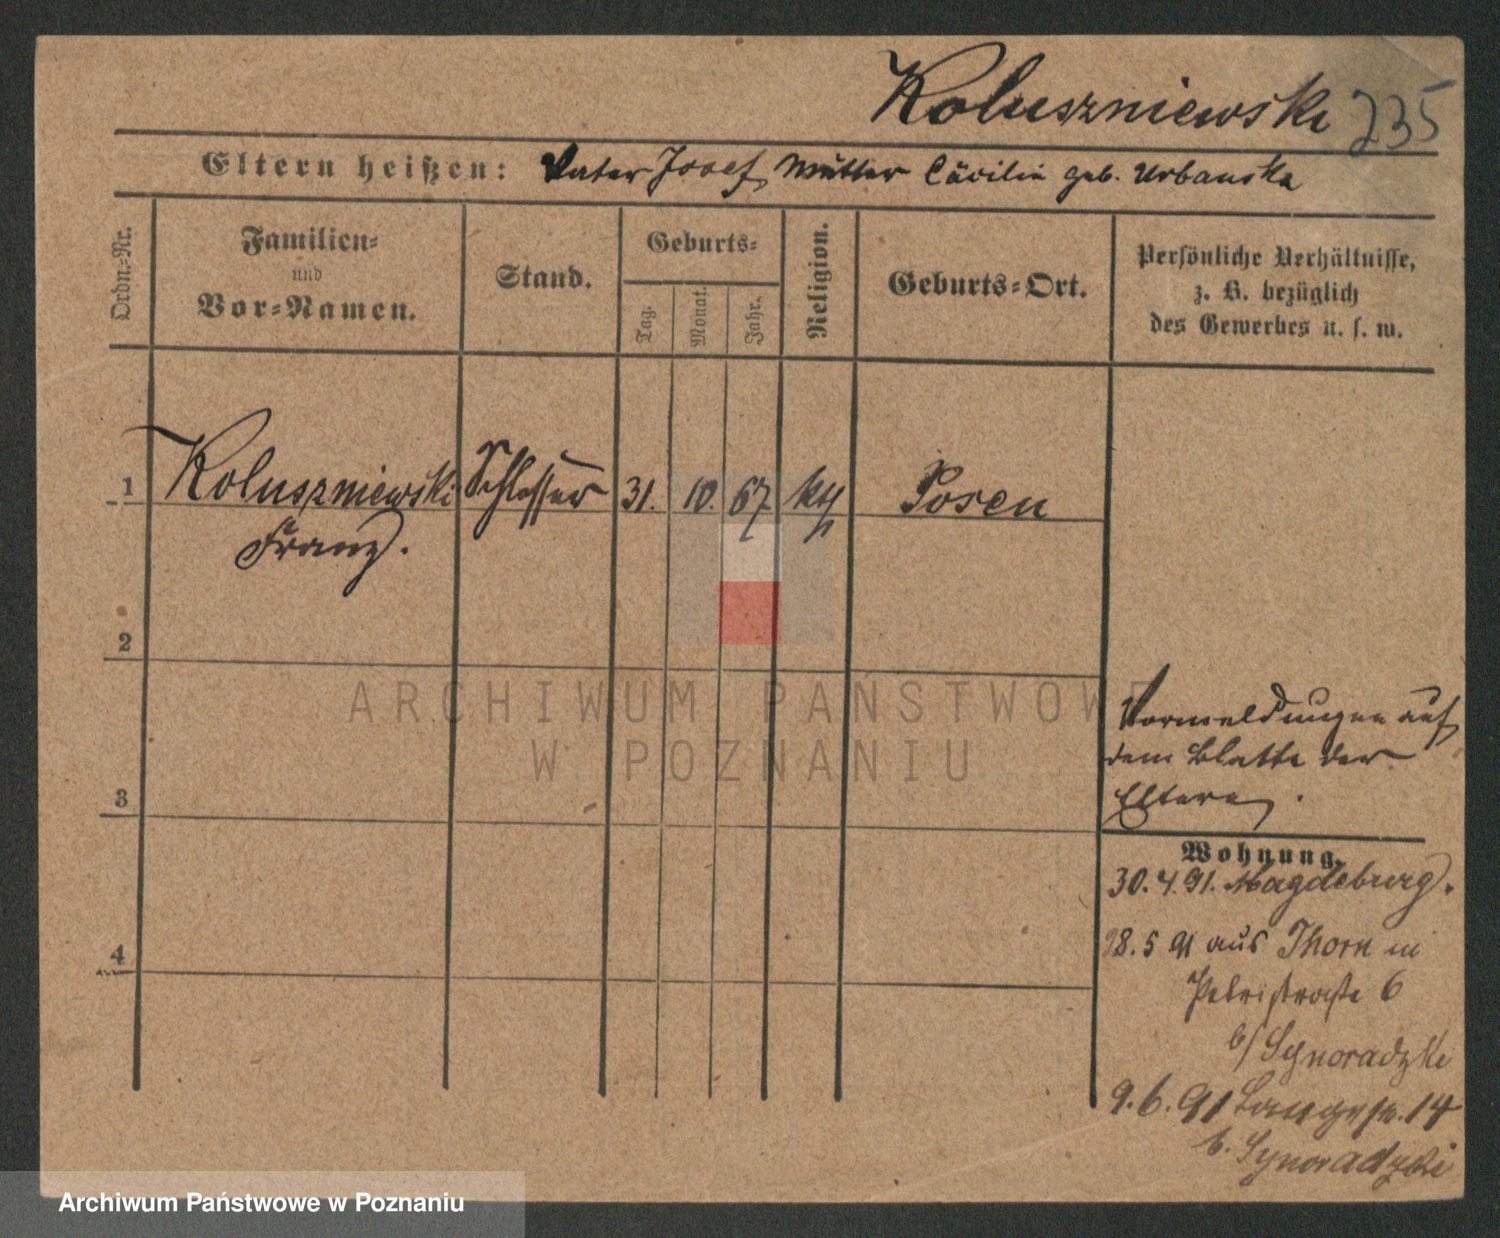 Koluszniewski 235
Eltern heißen: Vater Josef, Mutter Cäcilie geb. Urbanska
Ordn.-Nr.
Familien-
und
Vor-Namen.
Stand.
Geburts-
Tag.
Monat.
Jahr.
Religion.
Geburts-Ort.
Persönliche Verhältnisse,
z. B. bezüglich
des Gewerbes u. s. w.
1 Koluszniewski Schlosser 31. 10. 67 kth Posen
Franz.
2
3
4
Vormeldungen auf
dem Blatte der
Eltern.
Wohnung.
30.4.91. Magdeburg.
28.5 91 aus Thorn in
Petristraße 6
b/ Synoradzki
9.6.91 Langestr. 14
b. Synoradzki
ARCHIWUM PAŃSTWOWE
W POZNANIU
Archiwum Państwowe w Poznaniu